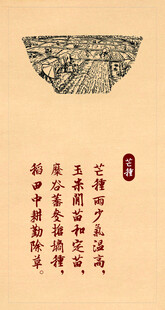 芒種
芒種雨少氣溫高，
玉米間苗和定苗，
糜谷蕎麥搶墒種，
稻田中耕勤除草。